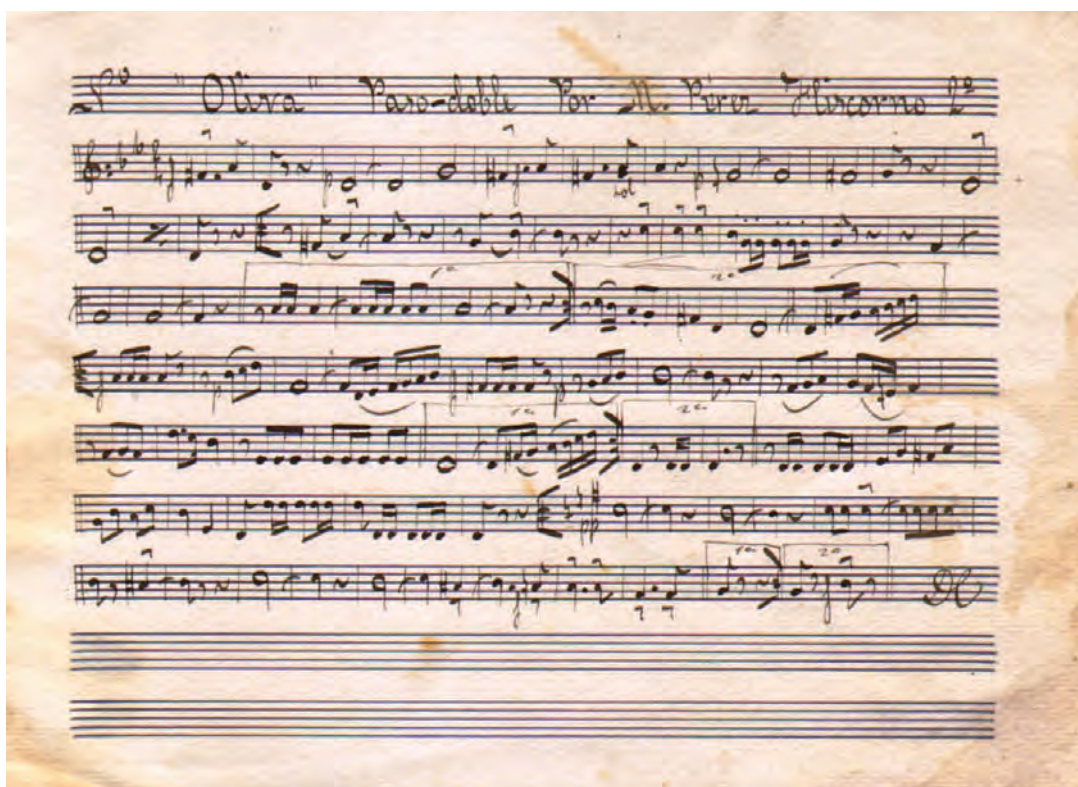 Nº "Oliva" Paso-doble Por M. Pérez Fliscorno 2º
sol
1a 2a
1a 2a
pp
1a 2a
DC